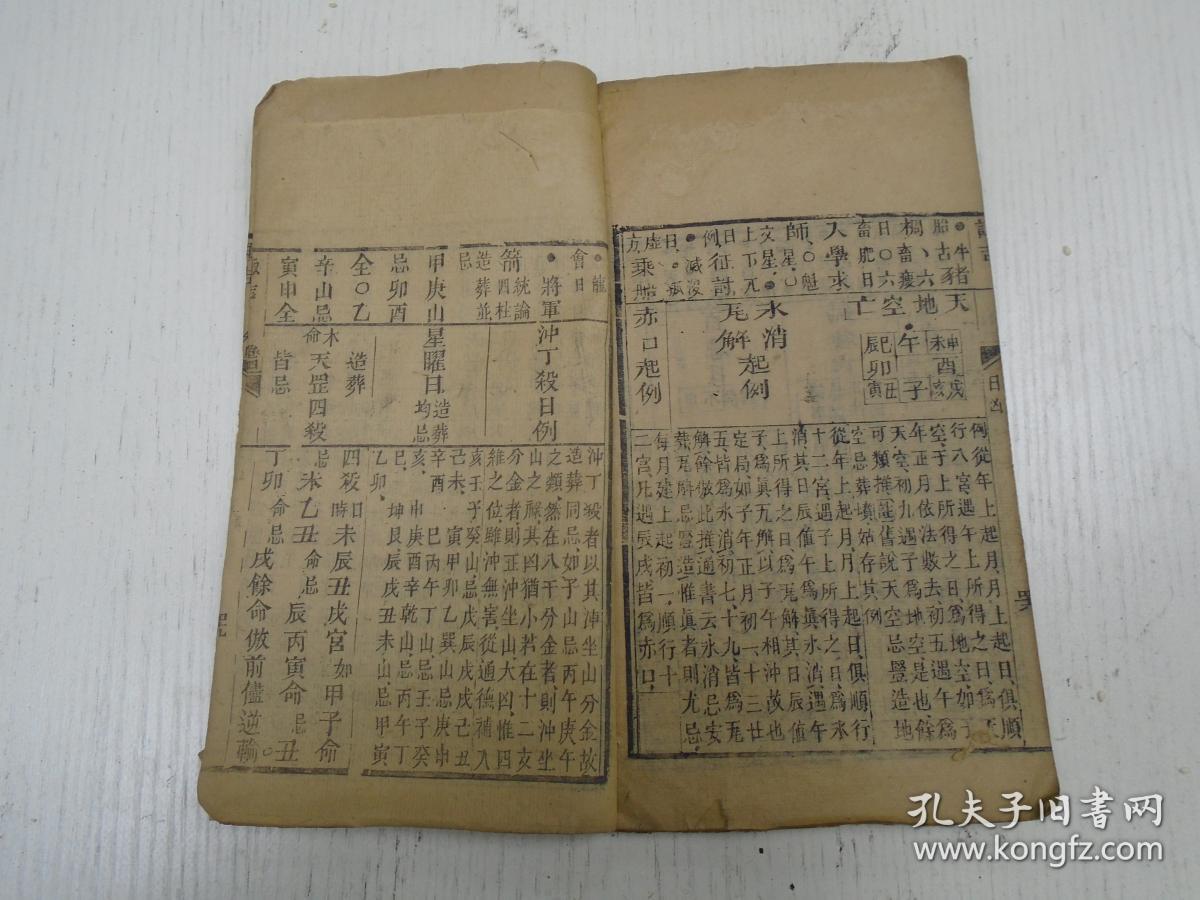 日凶
牛猪
胎古
欄八六
畜瘦
日〇六
畜肥日
入學求
師星〇魁
文星
上下兀
日征討
例
滅沒
日瓶
虛乘胎
方
天地空亡
申酉戌
未亥
午子
辰卯寅丑
例從年上起月月上起日俱順
行八宮遇午上所得之日為天
空于上所得之日為地空如子
年正月依法數去初五遇午為
天空初九遇子為地空是也餘
可類撰註舊說天空忌豎造地
空忌葬墳姑存其例
冰消瓦解起例
從年上起月月上起日俱順行
十二宮遇子上所得之日為氷
消其日辰值午為真氷消遇午
上所得之日為瓦解其日辰值
子為真瓦解以子午相沖故也
定局如子年正月初一十三廿
五皆為氷消初七十九皆為瓦
解餘倣此撰通書云氷消忌安
葬瓦解忌豎造惟真者則尤忌
赤口起例
每月建上起初一順行十
二宮凡遇辰戌皆為赤口
龍
會日
將軍
箭統論
四柱
造葬並
忌
甲庚山
忌卯酉
全〇乙
辛山忌
寅申全
沖丁殺日例
沖丁殺者以其沖坐山分金故
造葬同忌如子山忌丙午庚午
之類然在八干分金者則沖坐
山之祿其凶猶小若在十二支
分金者則正沖坐山大凶惟四
維之位雖沖無害從通德補入
星曜日造葬均忌
亥壬子癸山忌戊辰戊戌己丑
己未寅甲卯乙巽山忌庚申
辛酉巳丙午丁山忌壬子癸
亥申庚酉辛乾山忌丙午丁
巳坤艮辰戌丑未山忌甲寅
乙卯
造葬
天罡四殺
本命
皆忌
四殺日時未辰丑戌宮如甲子命
忌未乙丑命忌辰丙寅命忌丑
丁卯命忌戌餘命倣前儘逆輪
孔夫子旧书网
www.kongfz.com